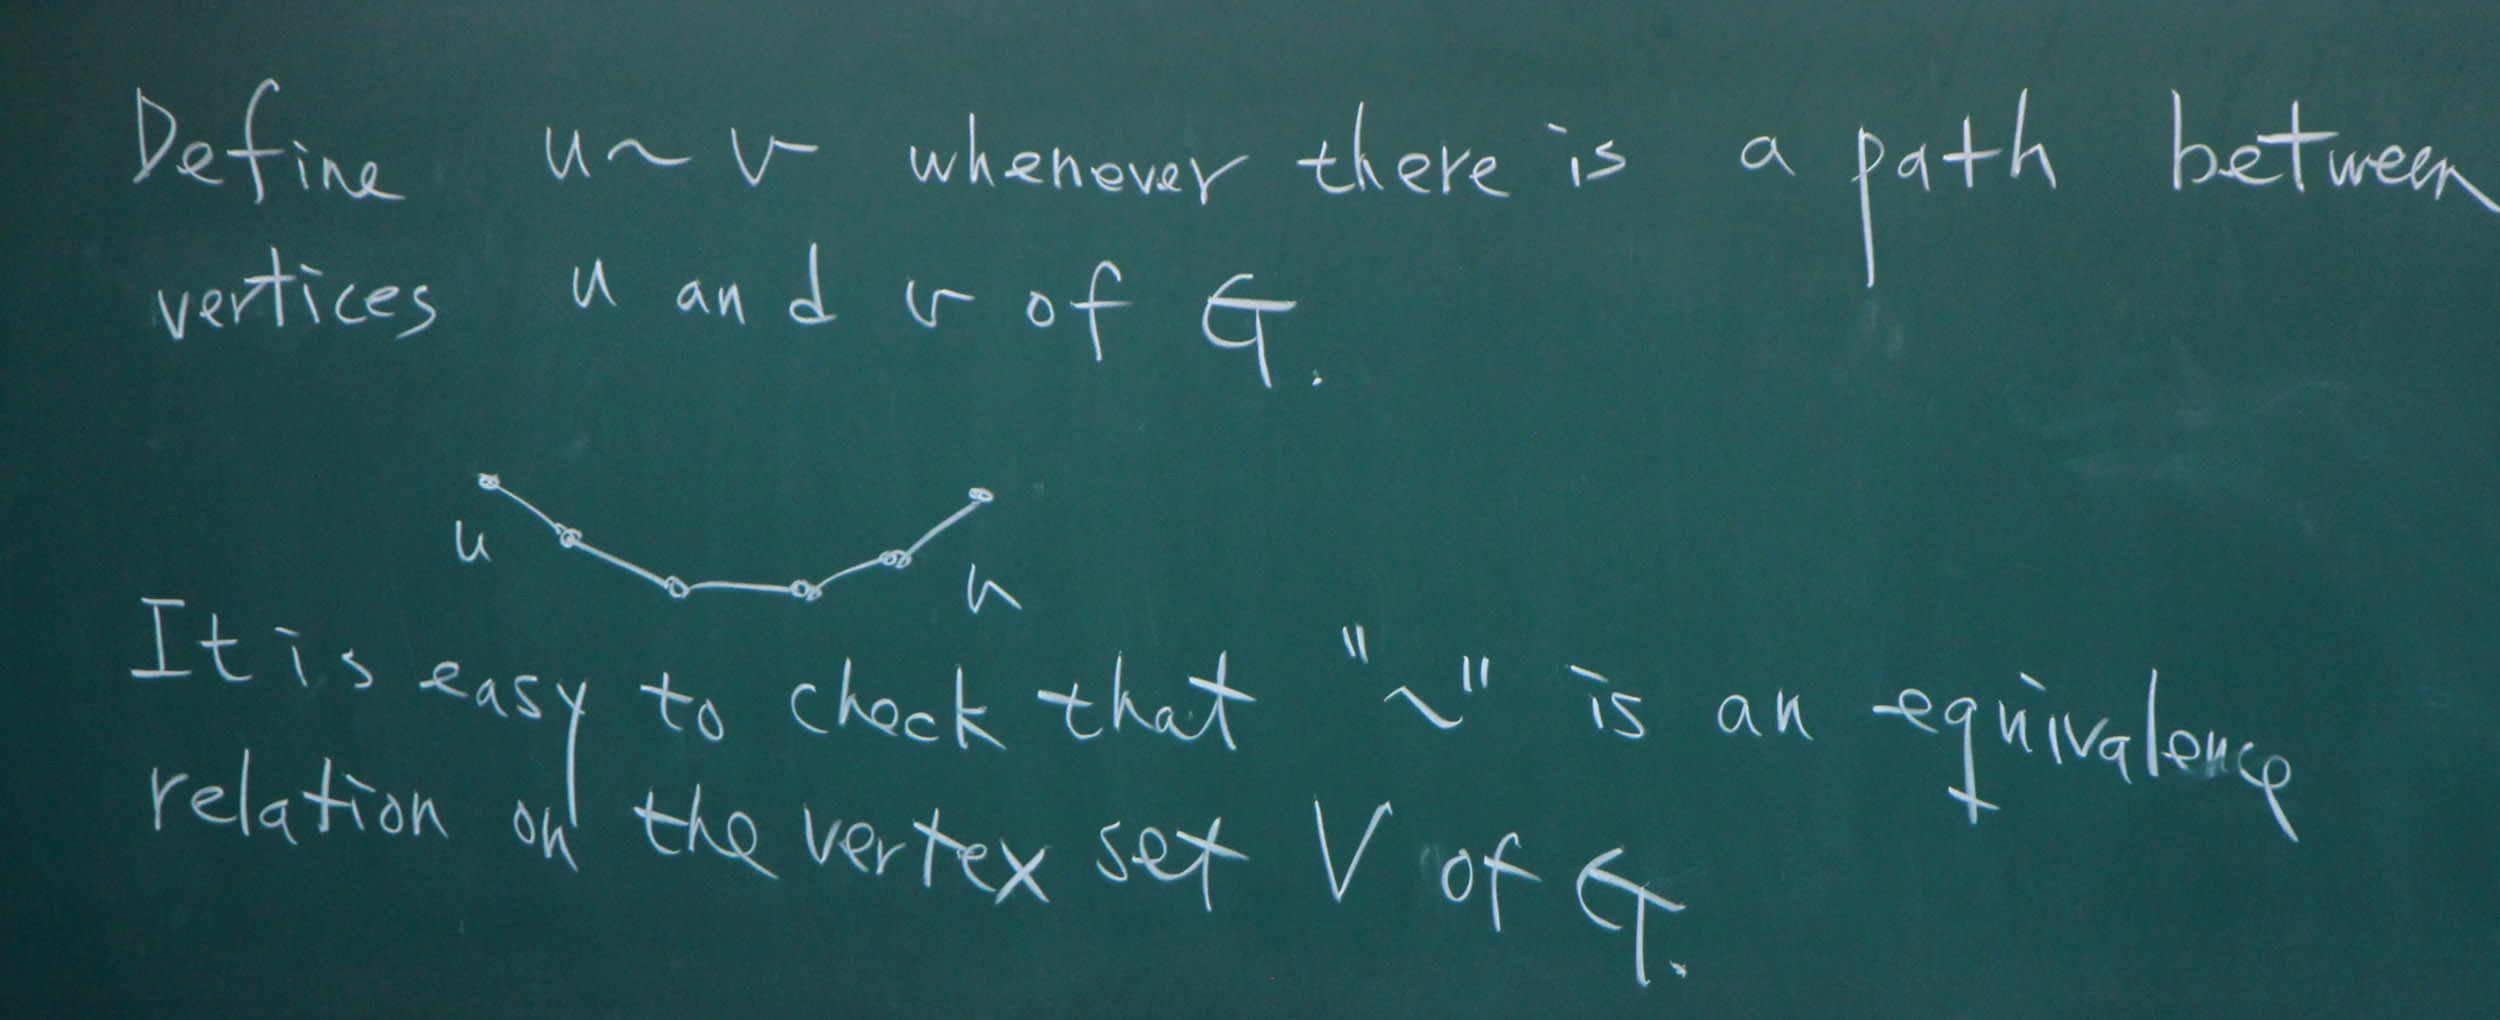 Define u ~ v whenever there is a path between
vertices u and v of G.
u
It is easy to check that "~" is an equivalence
relation on the vertex set V of G.